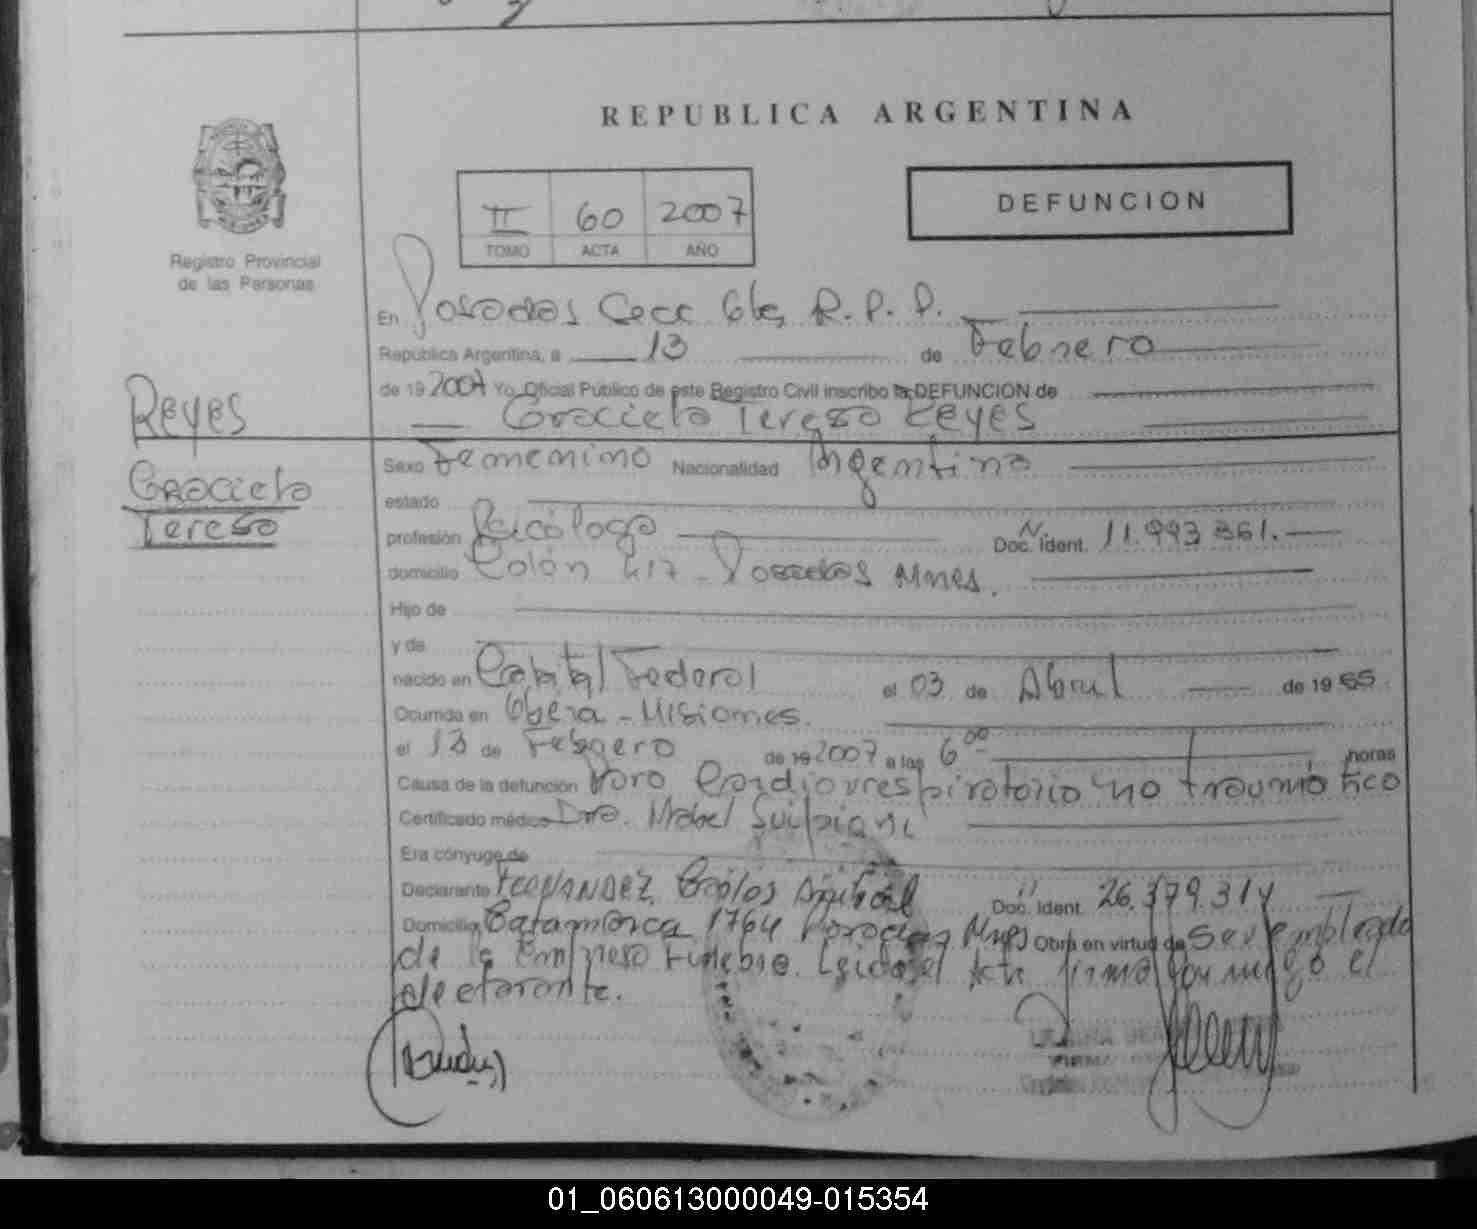 REPUBLICA ARGENTINA
II 60 2007
TOMO ACTA AÑO
DEFUNCION
Registro Provincial
de las Personas
En Posadas Secc 6ta R.P.P.
República Argentina, a 13 de Febrero
de 19 2007 Yo, Oficial Público de este Registro Civil inscribo la DEFUNCION de
Graciela Teresa Reyes
Reyes
Graciela
Teresa
Sexo Femenino Nacionalidad Argentina
estado
profesión Psicóloga Doc. Ident. N 11.993.361.
domicilio Colón 417 - Posadas Mnes.
Hijo de
y de
nacido en Capital Federal el 03 de Abril de 19 55
Ocurrida en Oberá - Misiones.
el 13 de Febrero de 19 2007 a las 6 00 horas
Causa de la defunción Paro Cardiorrespiratorio no traumático
Certificado médico Dra. Mabel
Era cónyuge de
Declarante Fernandez Carlos Anibal Doc. Ident. 26.379.314
Domicilio Catamarca 1764 Posadas Mnes Obra en virtud de ser empleado
de la Empresa Fúnebre. Leída el Acta firma conmigo el
declarante.
01_060613000049-015354